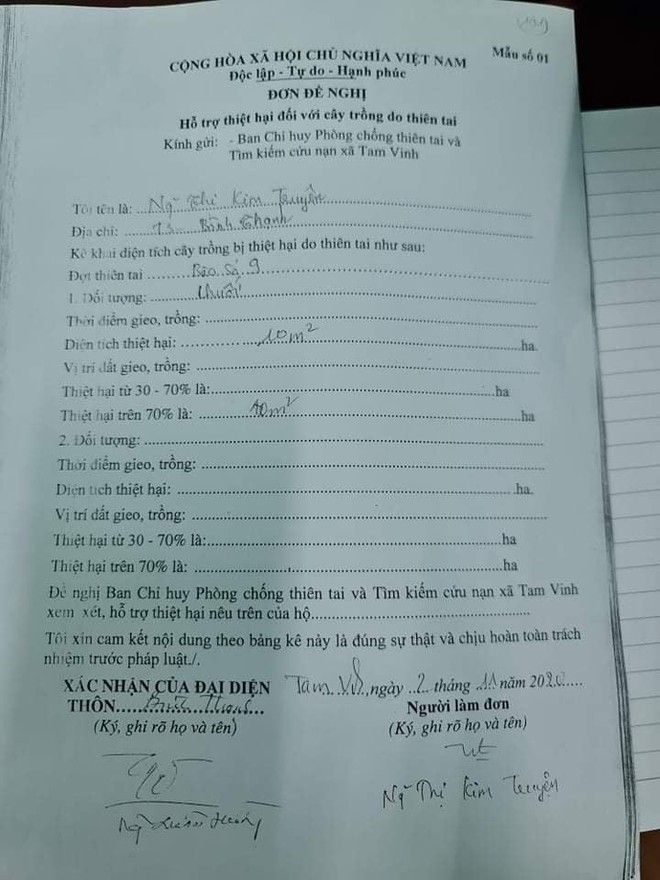 CỘNG HÒA XÃ HỘI CHỦ NGHĨA VIỆT NAM
Mẫu số 01
Độc lập - Tự do - Hạnh phúc
ĐƠN ĐỀ NGHỊ
Hỗ trợ thiệt hại đối với cây trồng do thiên tai
Kính gửi: - Ban Chỉ huy Phòng chống thiên tai và
Tìm kiếm cứu nạn xã Tam Vinh
Tôi tên là: Ng. Thị Kim Truyện
Địa chỉ: Bình Thạnh
Kê khai diện tích cây trồng bị thiệt hại do thiên tai như sau:
Đợt thiên tai Bão số 9
1. Đối tượng: Chuối
Thời điểm gieo, trồng:
Diện tích thiệt hại: 10m² ha.
Vị trí đất gieo, trồng:
Thiệt hại từ 30 - 70% là: ha
Thiệt hại trên 70% là: 10m² ha
2. Đối tượng:
Thời điểm gieo, trồng:
Diện tích thiệt hại: ha.
Vị trí đất gieo, trồng:
Thiệt hại từ 30 - 70% là: ha
Thiệt hại trên 70% là: ha
Đề nghị Ban Chỉ huy Phòng chống thiên tai và Tìm kiếm cứu nạn xã Tam Vinh
xem xét, hỗ trợ thiệt hại nêu trên của hộ
Tôi xin cam kết nội dung theo bảng kê này là đúng sự thật và chịu hoàn toàn trách
nhiệm trước pháp luật./.
XÁC NHẬN CỦA ĐẠI DIỆN
Tam Vinh, ngày 2 tháng 11 năm 2020
THÔN Bình Thạnh
Người làm đơn
(Ký, ghi rõ họ và tên)
(Ký, ghi rõ họ và tên)
Ng. Thị Kim Truyện